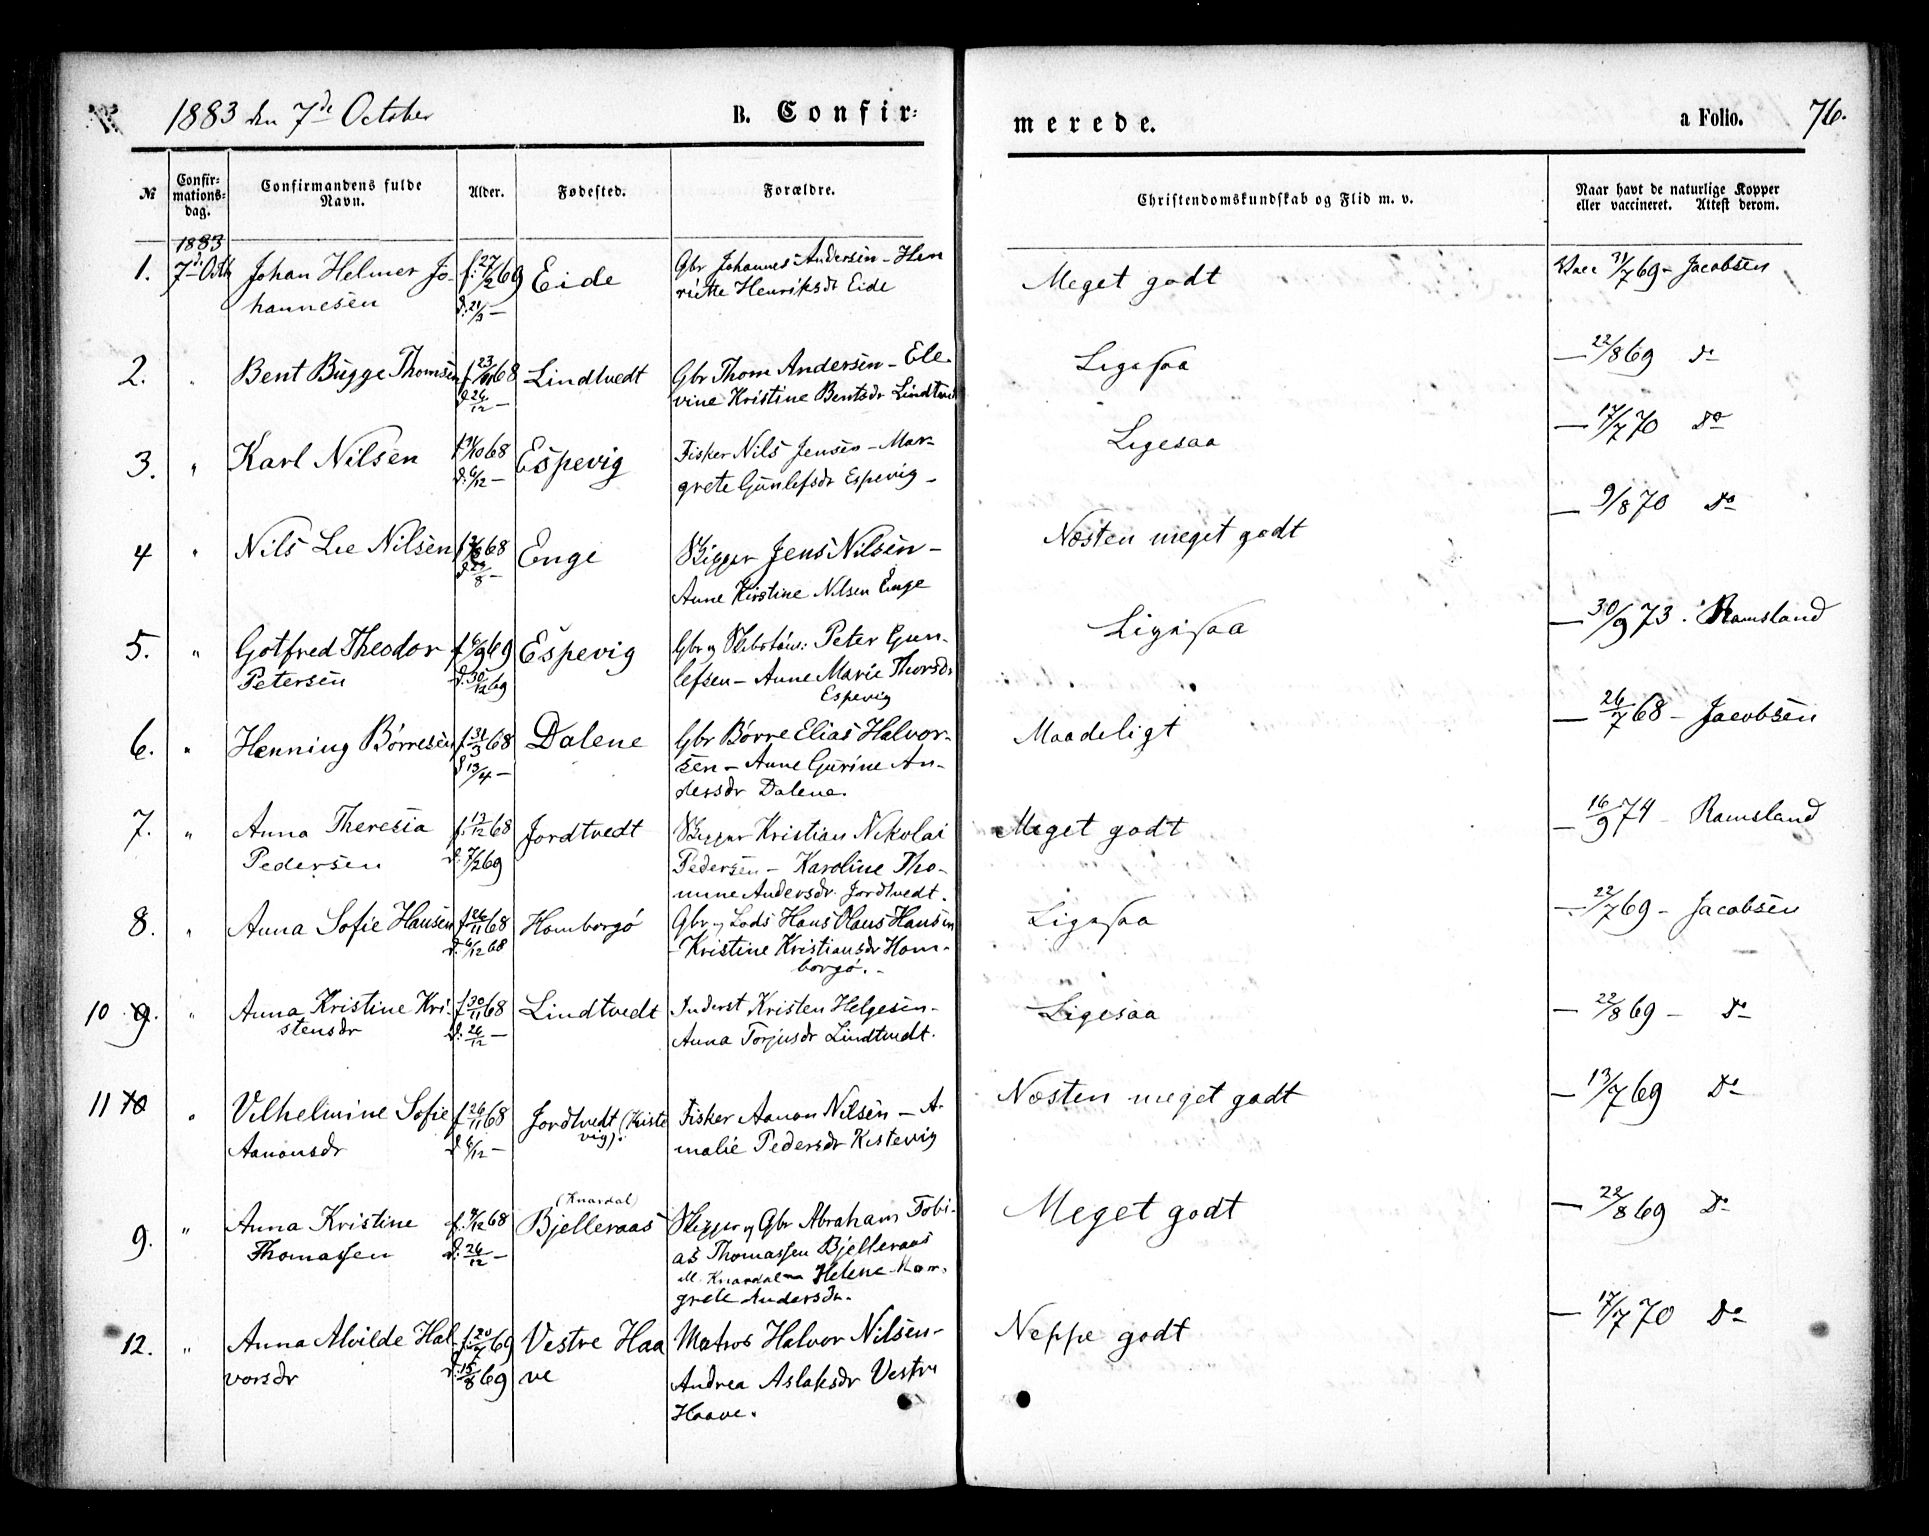 1883 den 7de October
B. Confir=
merede.
a Folio. 76.
№
Confir=
mations=
dag.
Confirmandens fulde
Navn.
Alder.
Fødested.
Forældre.
Christendomskundskab og Flid m. v.
Naar havt de naturlige Kopper
eller vaccineret. Attest derom.
1883
1. 7de Octb Johan Helmer Jo- f. 27/2 69 Eide Gbr Johannes Andersen - Hen Meget godt Vacc 31/7 69 - Jacobsen
hannesen d. 21/3 — riette Henriksdr Eide
2. " Bent Bugge Thomsen f. 23/11 68 Lindtvedt Gbr Thom Andersen - Ele- Ligesaa — 22/8 69 do
d. 26/12 — vine Kristine Bentsdr Lindtvedt
3. " Karl Nilsen 68 Espevig Fisker Nils Jensen - Mar- Ligesaa — 17/7 70 Do
d. 6/12 — grete Gunlefsdr Espevig -
4 " Nils Lie Nilsen 68 Enge Skipper Jens Nilsen - Næsten meget godt — 9/8 70 Do
Anne Kirstine Nilsen Enge
5. " Gotfred Theodor f. 6/9 69 Espevig Gbr og Peter Gun- Ligesaa — 30/9 73. Ramsland
Petersen d. 30/12 69 lefsen - Anne Marie Thorsdr
Espevig
6. " Henning Børresen f. 31/3 68 Dalene Gbr Børre Elias Halvor- Maadeligt — 26/7 68 - Jacobsen
d. 13/4 — sen - Anne Gurine An-
dersdr Dalene.
7. " Anna Theresia f. 13/12 68 Jordtvedt Skipper Kristian Nikolai Meget godt — 16/9 74 - Ramsland
Pedersen d. 7/2 69 Pedersen - Karoline Tho-
mine Andersdr. Jordtvedt.
8. " Anna Sofie Hansen f. 26/11 68 Homborgø Gbr og Lods Hans Olaus Hansen Ligesaa — 22/7 69 - Jacobsen
d. 6/12 68 - Kristine Kristiansdr Hom-
borgø. -
10 9. " Anna Kristine Kri- f. 30/11 68 Lindtvedt Inderst Kristen Helgesen - Ligesaa — 22/8 69 - Do
stensdr d. 26/12 — Anna Torjusdr Lindtvedt.
11 10 " Vilhelmine Sofie f. 26/11 68 Jordtvedt (Kiste Fisker Aanon Nilsen - A- Næsten meget godt — 13/7 69 Do
Aanonsdr d. 6/12 — vig). malie Pedersdr Kistevig
(Knardal)
9. " Anna Kristine f. 4/12 68 Bjelleraas Skipper og Gbr Abraham Tobi- Meget godt — 22/8 69 Do
Thomassen d. 26/12 — as Thomassen Bjelleraas
Knardal Helene Mar-
grete Andersdr.
12. " Anna Alvilde Hal- f. 20/7 69 Vestre Haa Matros Halvor Nilsen - Neppe godt — 17/7 70 Do
vorsdr d. 15/8 69 ve Andrea Aslaksdr Vestre
Haave.